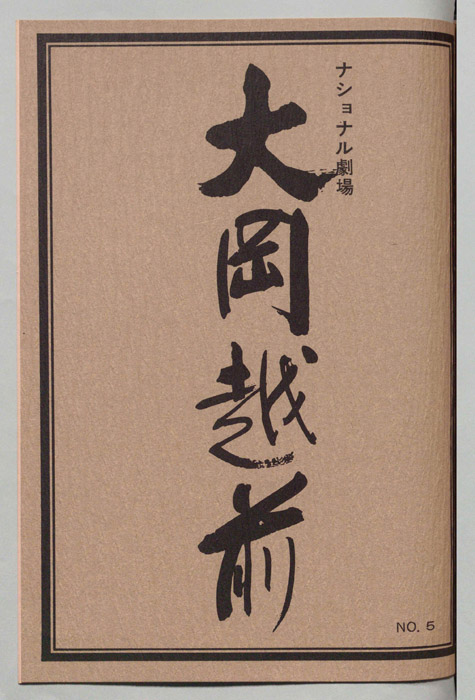 ナショナル劇場
大岡越前
NO. 5